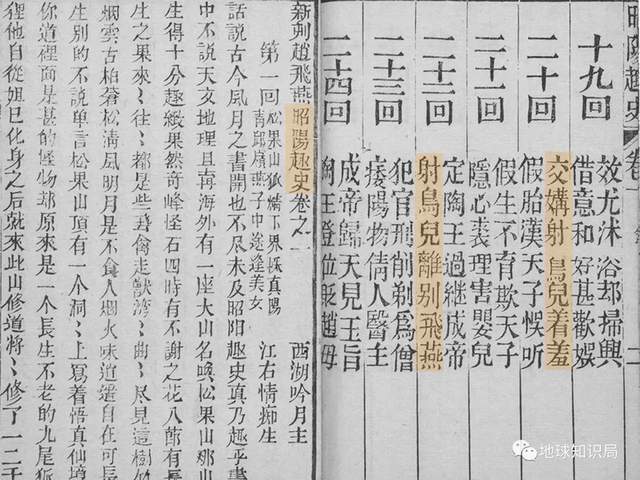 昭陽趣史 卷一 二
十九回
效尤沐浴却掃興
借意和好甚歡娛
二十回
交媾射鳥兒着羞
假胎漢天子悞听
二十一回
假生不育欺天子
隱心裴理害嬰兒
二十二回
定陶王過継成帝
射鳥兒離别飛燕
二十三回
犯官刑削剃爲僧
痿陽物倩人醫主
二十四回
成帝歸天見玉旨
陶王登位貶趙母
新刻趙飛燕昭陽趣史卷之一
西湖吟月主
江右情痴生
第一回
松果山狐精下界採真陽
燕子中途逢美女
話說古今風月之書開也不尽未及昭阳趣史真乃趣乎書
中不說天文地理且再海外有一座大山名喚松果山那山
生得十分趣緻果然奇峰怪石四時有不謝之花八節有長
生之果來〻往〻都是些異禽走獸湾〻曲〻尽見這樹似
烟雲古柏蒼松淸風明月是不食人烟火味道遥自在可長
生別的不說单言松果山頂有一个洞〻上寫着悟真仙境
你道裡面是甚的怪物却原來是一个長生不老的九尾狐
狸他自從妲已化身之后就來此山修道將〻修了一二千
地球知识局